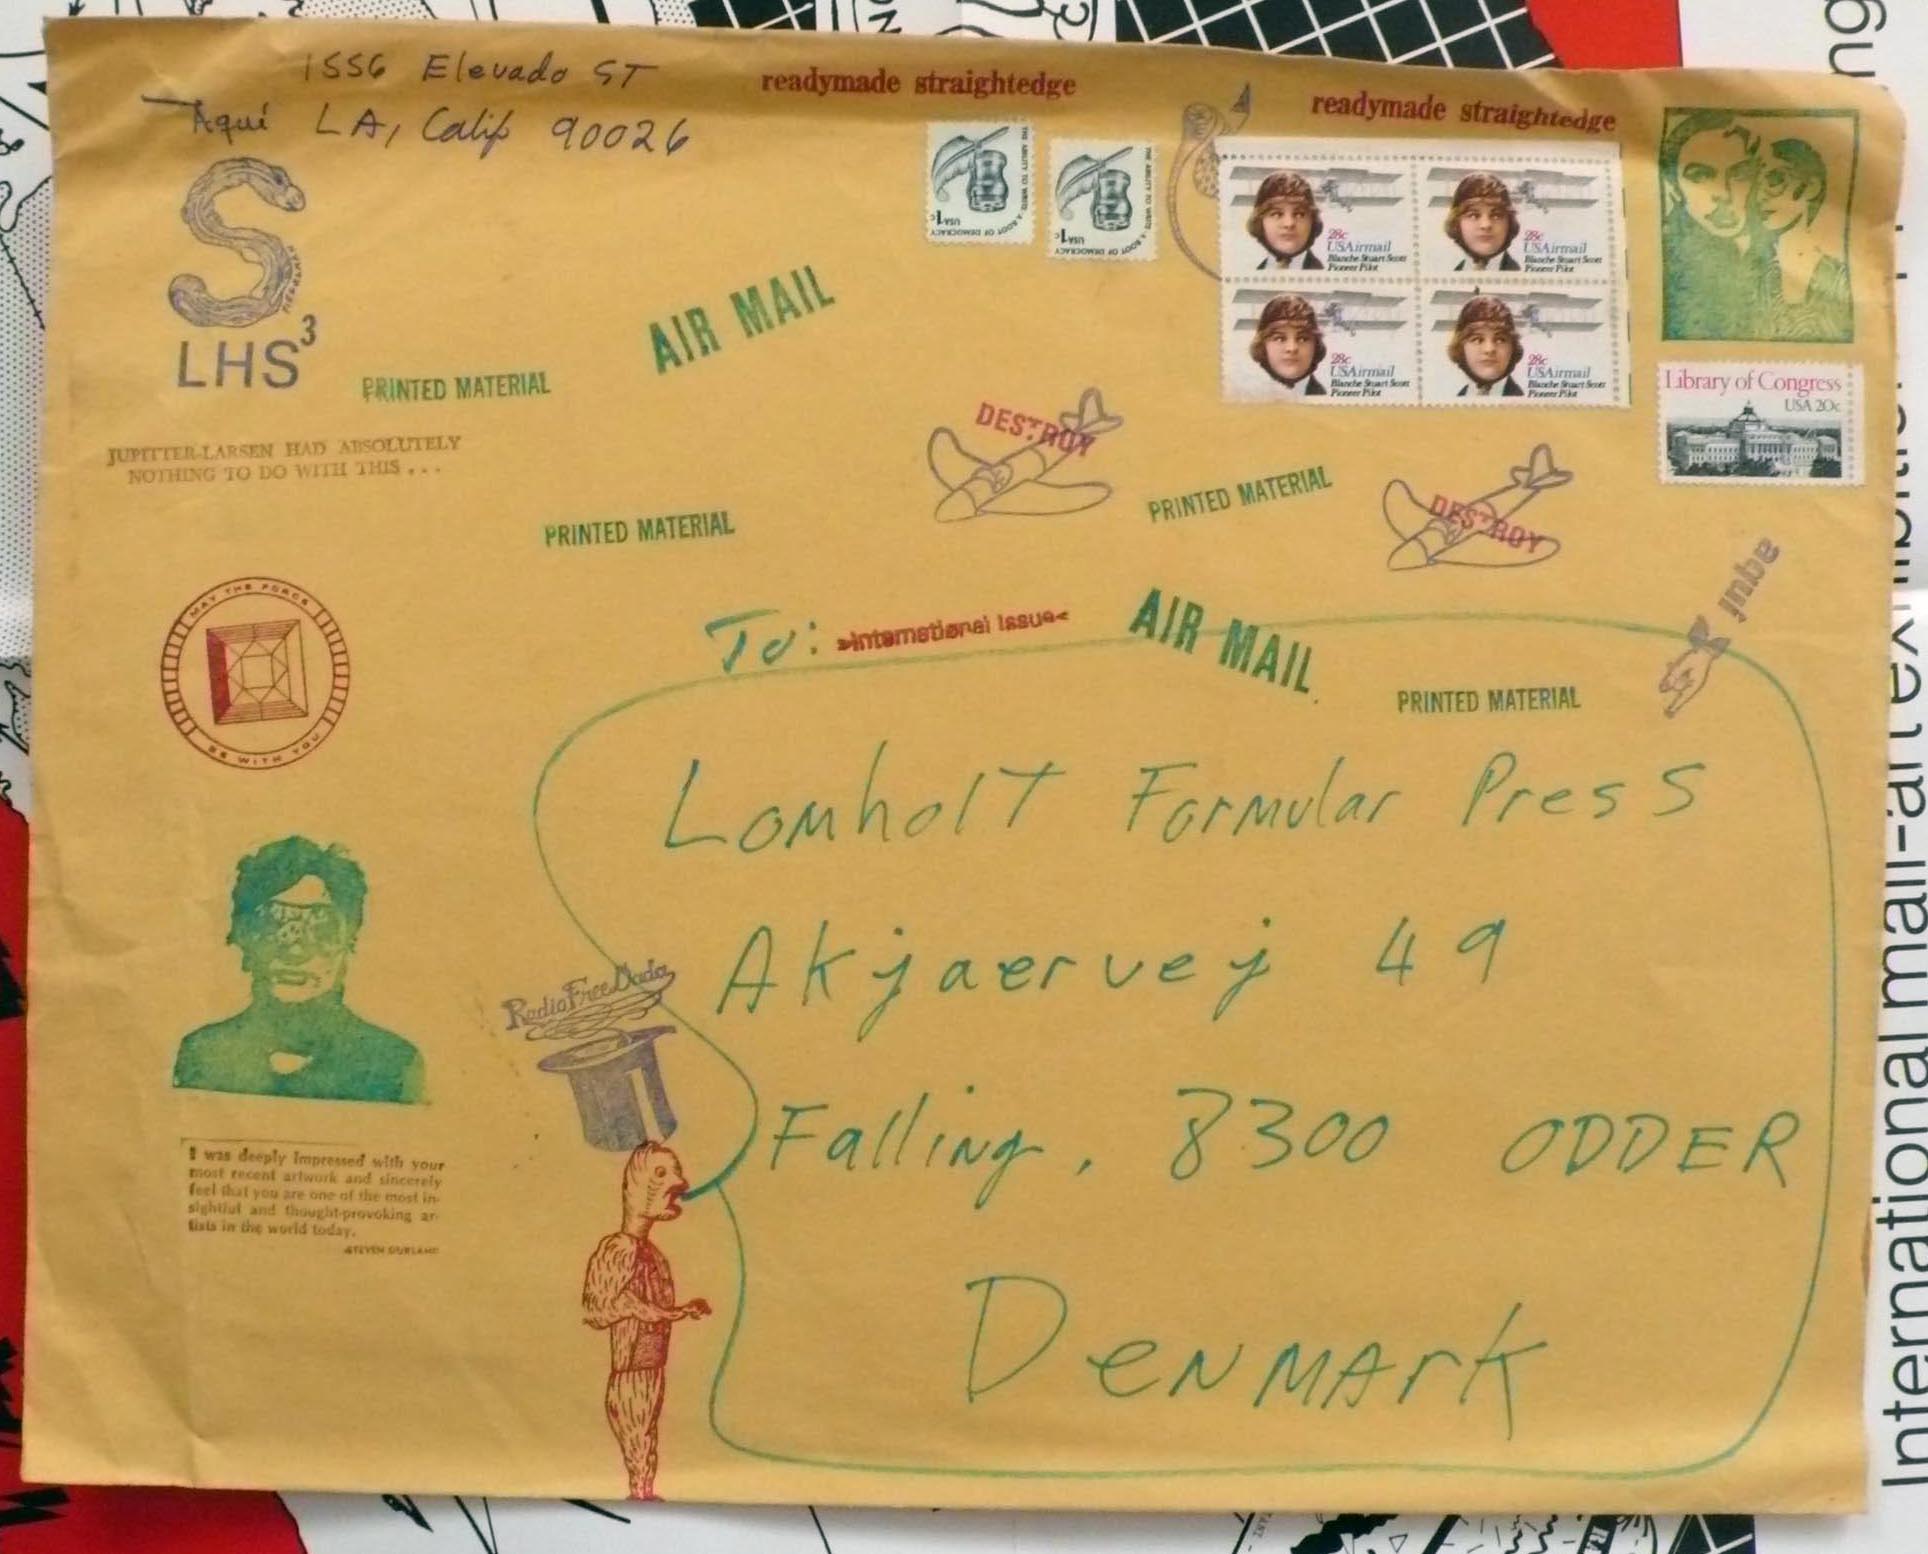 1556 Elevado ST
Aquí LA, Calif 90026
readymade straightedge
readymade straightedge
THE ABILITY TO WRITE · A ROOT OF DEMOCRACY
USA 1c
THE ABILITY TO WRITE · A ROOT OF DEMOCRACY
USA 1c
28c
USAirmail
Blanche Stuart Scott
Pioneer Pilot
28c
USAirmail
Blanche Stuart Scott
Pioneer Pilot
28c
USAirmail
Blanche Stuart Scott
Pioneer Pilot
28c
USAirmail
Blanche Stuart Scott
Pioneer Pilot
Library of Congress
USA 20c
S
LHS3
AIR MAIL
PRINTED MATERIAL
JUPITTER-LARSEN HAD ABSOLUTELY
NOTHING TO DO WITH THIS . . .
DESTROY
DESTROY
PRINTED MATERIAL
PRINTED MATERIAL
aqui
MAY THE FORCE
BE WITH YOU
To: >International Issue<
AIR MAIL
PRINTED MATERIAL
Lomholt Formular Press
Akjaervej 49
Falling, 8300 ODDER
DENMARK
Radio Free Dada
I was deeply impressed with your
most recent artwork and sincerely
feel that you are one of the most in-
sightful and thought-provoking ar-
tists in the world today.
STEVEN DURLAND
International mail-art exhibition